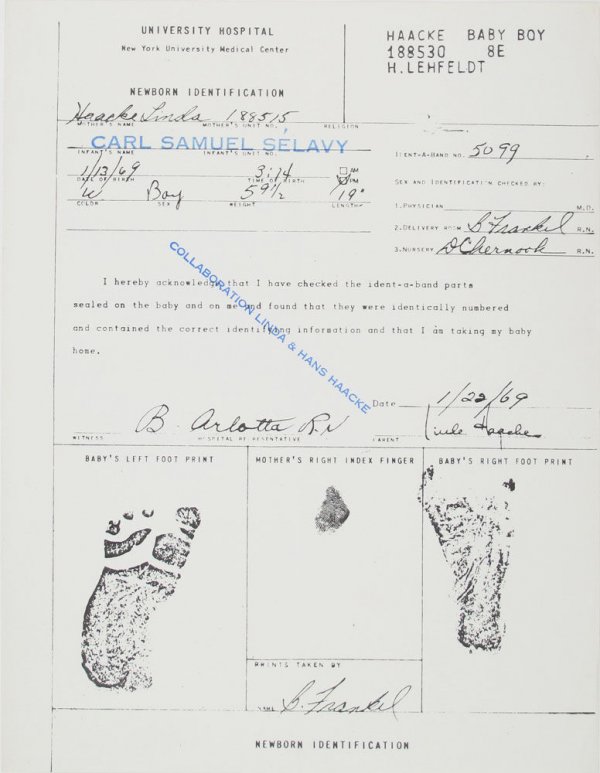 UNIVERSITY HOSPITAL
New York University Medical Center
NEWBORN IDENTIFICATION
HAACKE BABY BOY
188530 8E
H.LEHFELDT
Haacke Linda 188515
MOTHER'S NAME MOTHER'S UNIT NO. RELIGION
CARL SAMUEL SÉLAVY
INFANT'S NAME INFANT'S UNIT NO.
1/13/69 3:14 AM
DATE OF BIRTH TIME OF BIRTH PM
W Boy 59 1/2 19"
COLOR SEX WEIGHT LENGTH
IDENT-A-BAND NO. 5099
SEX AND IDENTIFICATION CHECKED BY:
1.PHYSICIAN M.D.
2.DELIVERY ROOM B. Frankel R.N.
3.NURSERY D Chernook R.N.
COLLABORATION LINDA & HANS HAACKE
I hereby acknowledge that I have checked the ident-a-band parts
sealed on the baby and on me and found that they were identically numbered
and contained the correct identifying information and that I am taking my baby
home.
Date 1/22/69
B. Arlotta R.N. Linda Haacke
WITNESS HOSPITAL REPRESENTATIVE PARENT
BABY'S LEFT FOOT PRINT
MOTHER'S RIGHT INDEX FINGER
BABY'S RIGHT FOOT PRINT
PRINTS TAKEN BY
NAME B. Frankel
NEWBORN IDENTIFICATION